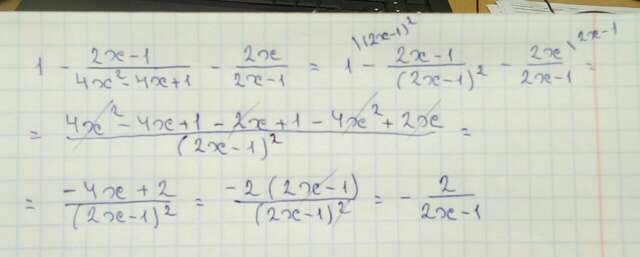 1 - (2x-1)/(4x²-4x+1) - 2x/(2x-1) = 1\(2x-1)² - (2x-1)/(2x-1)² - 2x/(2x-1)\2x-1 =
= (4x²-4x+1-2x+1-4x²+2x)/(2x-1)² =
= (-4x+2)/(2x-1)² = (-2(2x-1))/(2x-1)² = - 2/(2x-1)